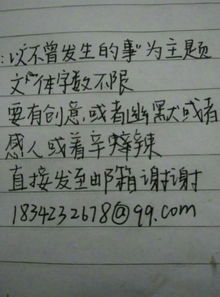 :以"不曾发生的事"为主题
文体字数不限
要有创意,或者幽默或者
感人或着辛辣辣
直接发至邮箱谢谢
1834232678@qq.com